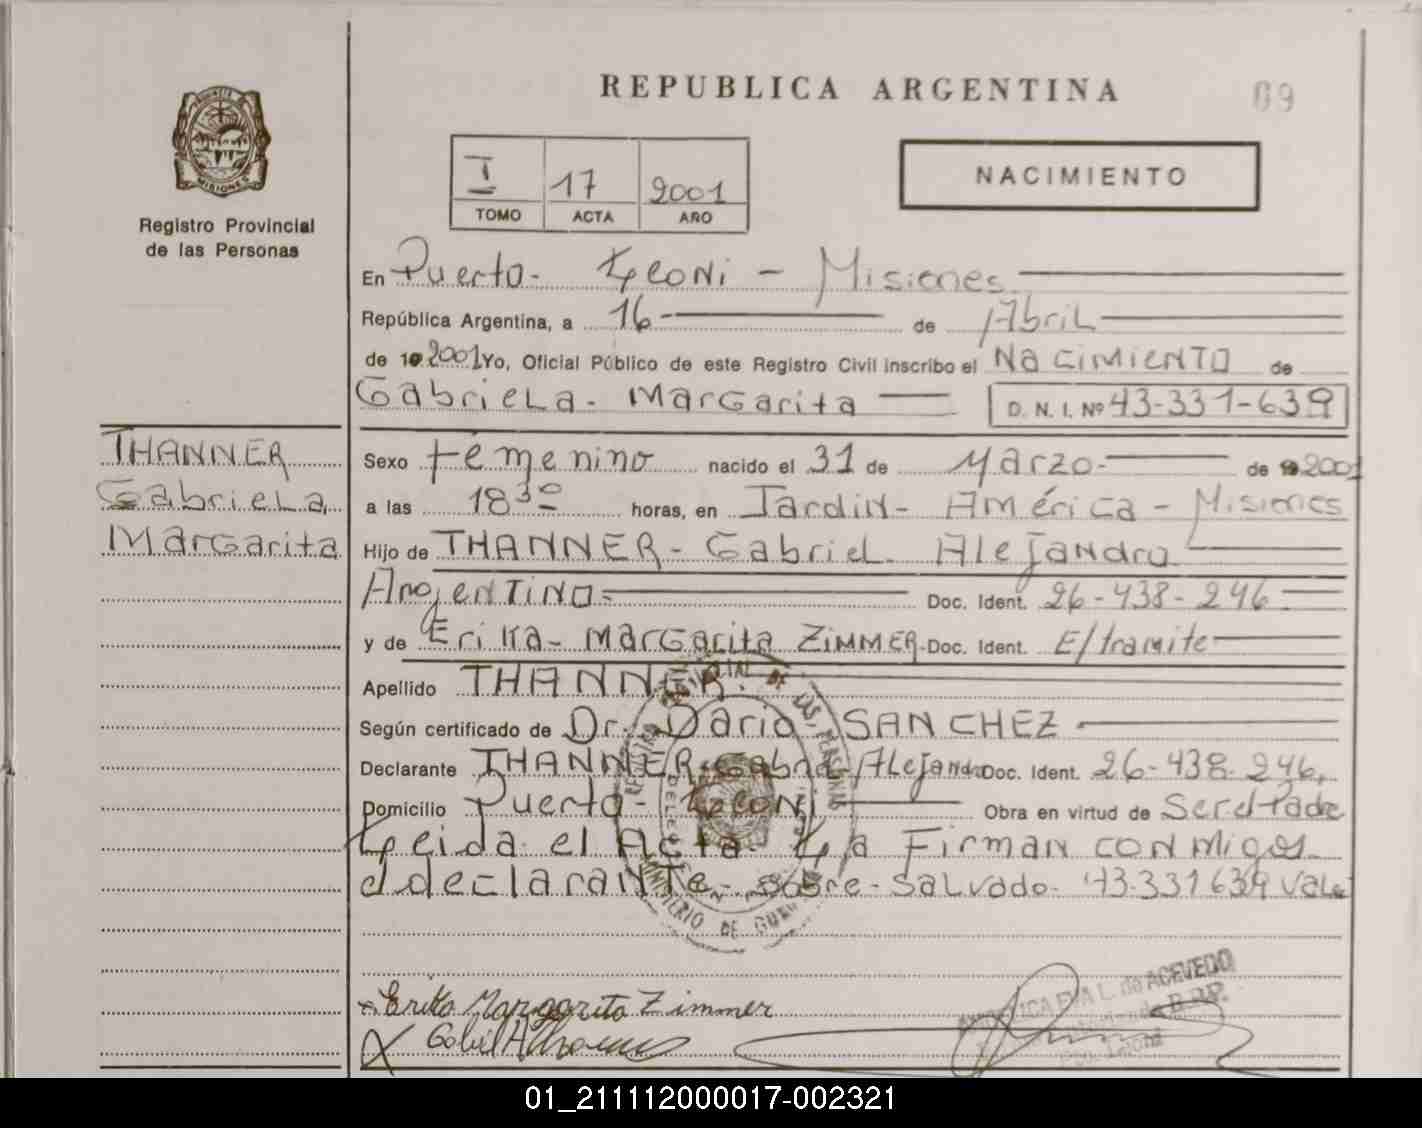 REPUBLICA ARGENTINA
09
PROVINCIA DE
MISIONES
Registro Provincial
de las Personas
I 17 2001
TOMO ACTA AÑO
NACIMIENTO
En Puerto- Leoni - Misiones
República Argentina, a 16 de Abril
de 19 2001 Yo, Oficial Público de este Registro Civil inscribo el NaCIMIENTO de
GabrieLa- MarGarita D. N. I. Nº 43-331-639
THANNER
GabrieLa
MarGarita
Sexo Femenino nacido el 31 de Marzo- de 19 2001
a las 18 30 horas, en Jardin- América - Misiones
Hijo de THANNER- Gabriel Alejandro
Argentino- Doc. Ident. 26-438-246
y de Erika- MarGarita ZIMMER- Doc. Ident. E/tramite
Apellido THANNER-
Según certificado de Dr. Dario SANCHEZ -
Declarante THANNER- Gabriel Alejandro Doc. Ident. 26-438-246,
Domicilio Puerto- Leoni Obra en virtud de Ser el Padre
Leida el Acta- La Firman CONMigo-
el declarante- Sobre-Salvado- 43.331639 Vale
Erika Margarita Zimmer
EVA L. de ACEVEDO
01_211112000017-002321